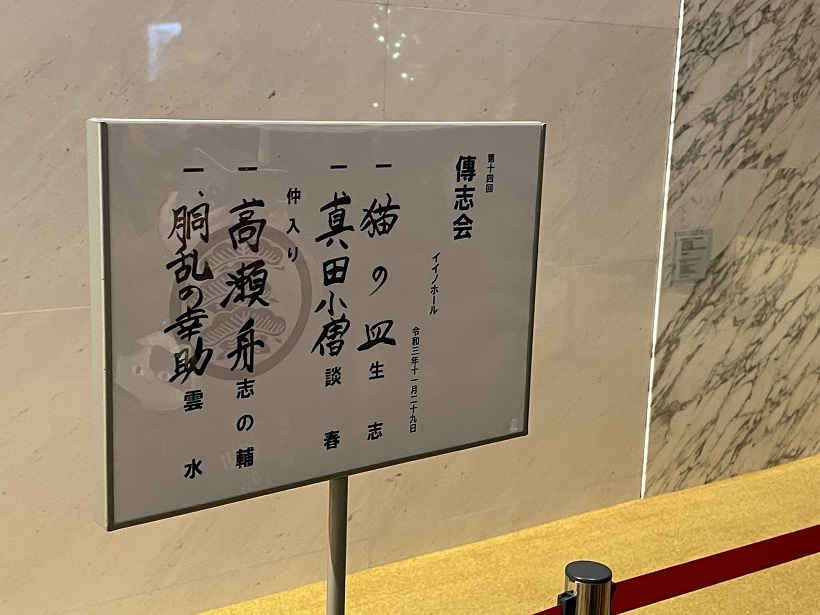 第十四回
傳志会
イイノホール
令和三年十一月二十九日
一 猫の皿 生志
一 真田小僧 談春
仲入り
一 高瀬舟 志の輔
一、胴乱の幸助 雲水